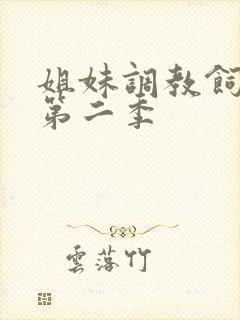 姐妹調教飼
第二季
雲落竹